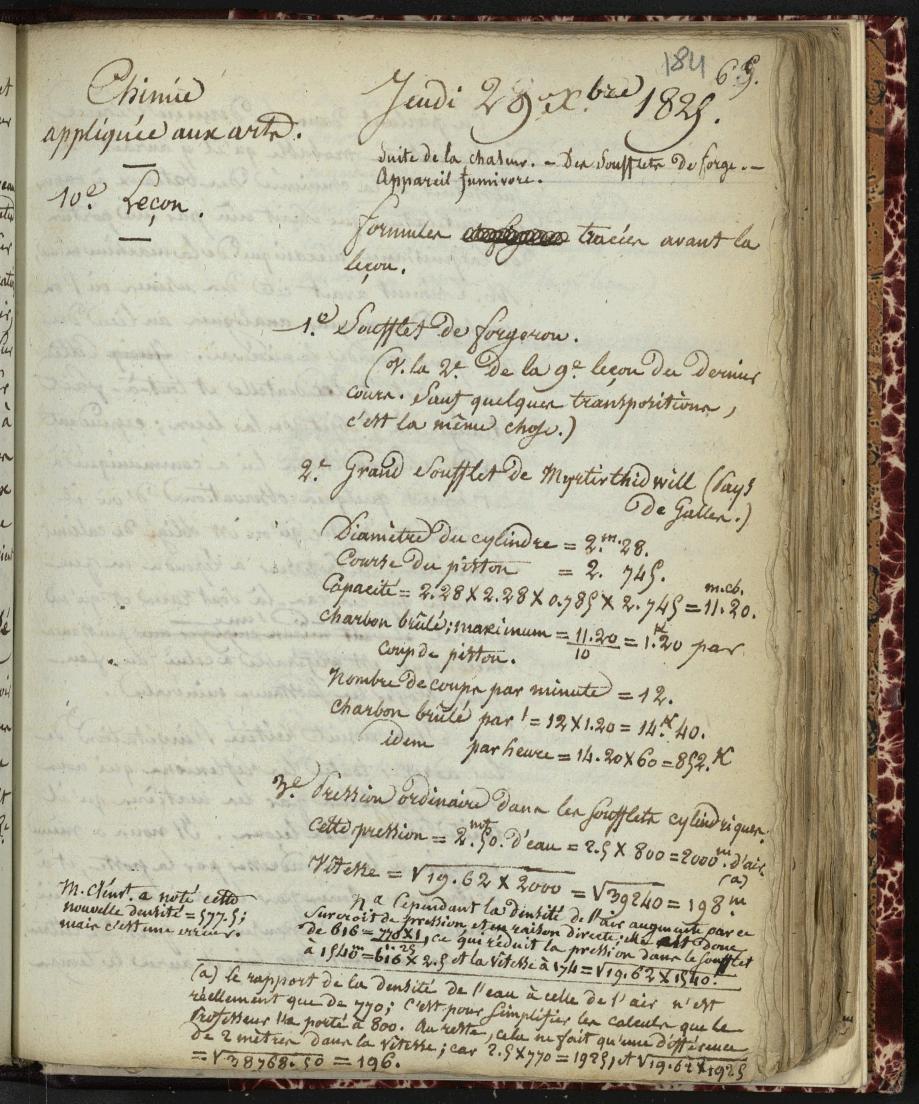 184
69.
Chimie
appliquée aux arts.
10.e Leçon.
Jeudi 29 Xbre 1825.
Suite de la chaleur. – Des Soufflets de forge. –
Appareil fumivore.
formules tracées avant la
leçon.
1.e Soufflet de forgeron.
(V. la 2.e de la 9.e leçon du dernier
cours. Sauf quelques transpositions,
c'est la même chose.)
2.e Grand Soufflet de Myrtirthidwill (Pays
de Galles.)
Diamètre du cylindre = 2.m 28.
Course du piston = 2. 745.
Capacité = 2.28 X 2.28 X 0.785 X 2.745 = 11.20. m.cb.
charbon brûlé; maximum = 11.20/10 = 1.k20 par
coup de piston.
Nombre de coups par minute = 12.
charbon brûlé par ' = 12 X 1.20 = 14.k 40.
idem par heure = 14.20 X 60 = 852.K
3.e Pression ordinaire dans les soufflets cylindriques.
cette pression = 2.50. d'eau = 2.5 X 800 = 2000 m. d'air
(a)
Vitesse = √19.62 X 2000 = √39240 = 198.m
n.a Cependant la densité de l'air augmente par ce
surcroit de pression et en raison directe; elle est donc
de 616 = 770 X 1/1.25, ce qui réduit la pression dans le soufflet
à 1540m = 616 X 2.5 et la vitesse à 174 = √19.62 X 1540.
M. Clémt. a noté cette
nouvelle densité = 577.5;
mais c'est une erreur.
(a) Le rapport de la densité de l'eau à celle de l'air n'est
réellement que de 770; c'est pour simplifier les calculs que le
Professeur l'a porté à 800. Au reste, cela ne fait qu'une différence
de 2 mètres dans la vitesse; car 2.5 X 770 = 1925, et √19.62 X 1925
= √38768.50 = 196.